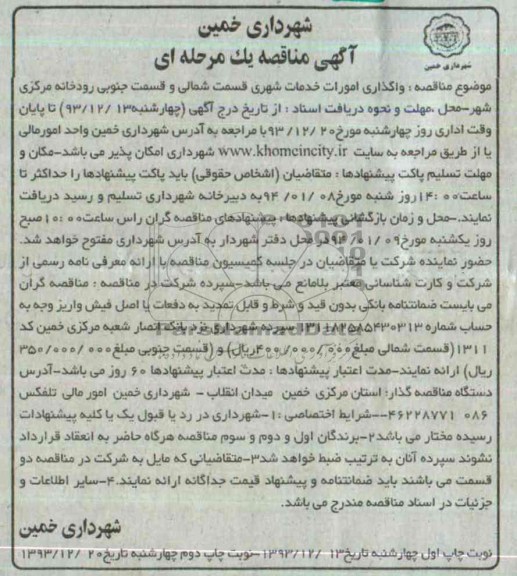 شهرداری خمین
آگهی مناقصه یك مرحله ای
شهرداری خمین
موضوع مناقصه : واگذاری امورات خدمات شهری قسمت شمالی و قسمت جنوبی رودخانه مرکزی
شهر-محل ،مهلت و نحوه دریافت اسناد : از تاریخ درج آگهی (چهارشنبه۹۳/۱۲/۱۳) تا پایان
وقت اداری روز چهارشنبه مورخ۹۳/۱۲/۲۰با مراجعه به آدرس شهرداری خمین واحد امورمالی
یا از طریق مراجعه به سایت www.khomeincity.ir شهرداری امکان پذیر می باشد-مکان و
مهلت تسلیم پاکت پیشنهادها : متقاضیان (اشخاص حقوقی) باید پاکت پیشنهادها را حداکثر تا
ساعت۱۴:۰۰روز شنبه مورخ۹۴/۰۱/۰۸به دبیرخانه شهرداری تسلیم و رسید دریافت
نمایند.-محل و زمان بازگشائی پیشنهادها : پیشنهادهای مناقصه گران راس ساعت۱۰:۰۰صبح
روز یکشنبه مورخ۹۴/۰۱/۰۹در محل دفتر شهردار به آدرس شهرداری مفتوح خواهد شد.
حضور نماینده شرکت یا متقاضیان در جلسه کمیسیون مناقصه با ارائه معرفی نامه رسمی از
شرکت و کارت شناسائی معتبر بلامانع می باشد-سپرده شرکت در مناقصه : مناقصه گران
می بایست ضمانتنامه بانکی بدون قید و شرط و قابل تمدید به دفعات یا اصل فیش واریز وجه به
حساب شماره ۳۱۱۸۲۵۸۵۴۳۰۳۱۳ سپرده شهرداری نزد بانک انصار شعبه مرکزی خمین کد
۱۳۱۱(قسمت شمالی مبلغ۴۰۰/۰۰۰/۰۰۰ریال) و (قسمت جنوبی مبلغ۳۵۰/۰۰۰/۰۰۰
ریال) ارائه نمایند-مدت اعتبار پیشنهادها : مدت اعتبار پیشنهادها ۶۰ روز می باشد-آدرس
دستگاه مناقصه گذار: استان مرکزی خمین میدان انقلاب - شهرداری خمین امور مالی تلفکس
۰۸۶ ۴۶۲۲۸۷۷۱--شرایط اختصاصی :۱-شهرداری در رد یا قبول یک یا کلیه پیشنهادات
رسیده مختار می باشد۲-برندگان اول و دوم و سوم مناقصه هرگاه حاضر به انعقاد قرارداد
نشوند سپرده آنان به ترتیب ضبط خواهد شد۳-متقاضیانی که مایل به شرکت در مناقصه دو
قسمت می باشند باید ضمانتنامه و پیشنهاد قیمت جداگانه ارائه نمایند.۴-سایر اطلاعات و
جزئیات در اسناد مناقصه مندرج می باشد.
شهرداری خمین
نوبت چاپ اول چهارشنبه تاریخ۱۳۹۳/۱۲/۱۳-نوبت چاپ دوم چهارشنبه تاریخ۱۳۹۳/۱۲/۲۰